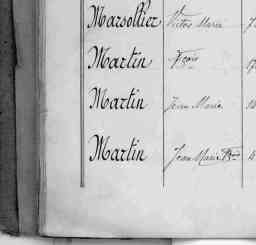 Marsollier Victor Marie 7
Martin fçois
Martin Jean Marie
Martin Jean Marie Bte